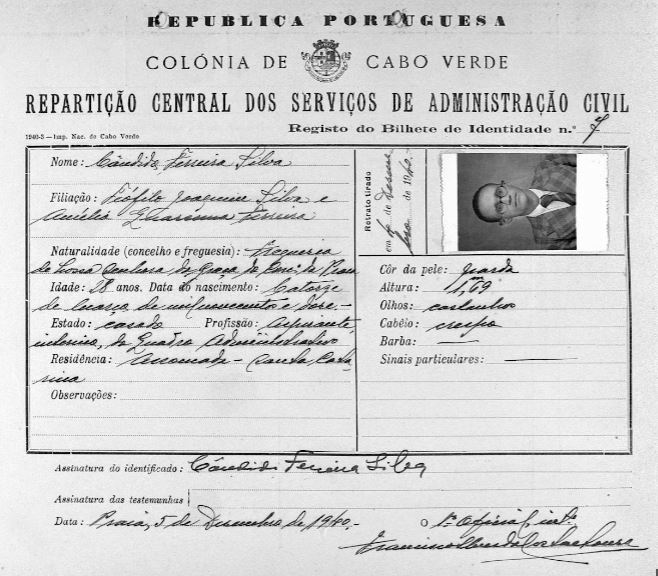 REPUBLICA PORTUGUESA
COLÓNIA DE CABO VERDE
REPARTIÇÃO CENTRAL DOS SERVIÇOS DE ADMINISTRAÇÃO CIVIL
1940-3 — Imp. Nac. de Cabo Verde
Registo do Bilhete de Identidade n.º 7
Nome: Cândido Ferreira Silva
Filiação: Teófilo Joaquim Silva e
Ferreira
Naturalidade (concelho e freguesia): Freguesia
de Nossa Senhora da Graça da
Idade: 28 anos. Data do nascimento: Catorze
de Março de mil novecentos e doze.—
Estado: casado Profissão: Aspirante
interino, do Quadro Administrativo
Residência: Assomada - Santa Cata-
rina
Observações:
Retrato tirado
em de Dezem-
bro de 1940.
Côr da pele: parda
Altura: 1,m69
Olhos: castanhos
Cabêlo: crespo
Barba: —
Sinais particulares: —
Assinatura do identificado: Cândido Ferreira Silva
Assinatura das testemunhas
Data: Praia, 5 de Dezembro de 1940.-
O 1º Oficial, intº
Francisco